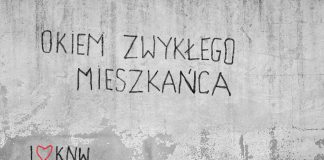 OKIEM ZWYKŁEGO
MIESZKAŃCA
I♡KNW